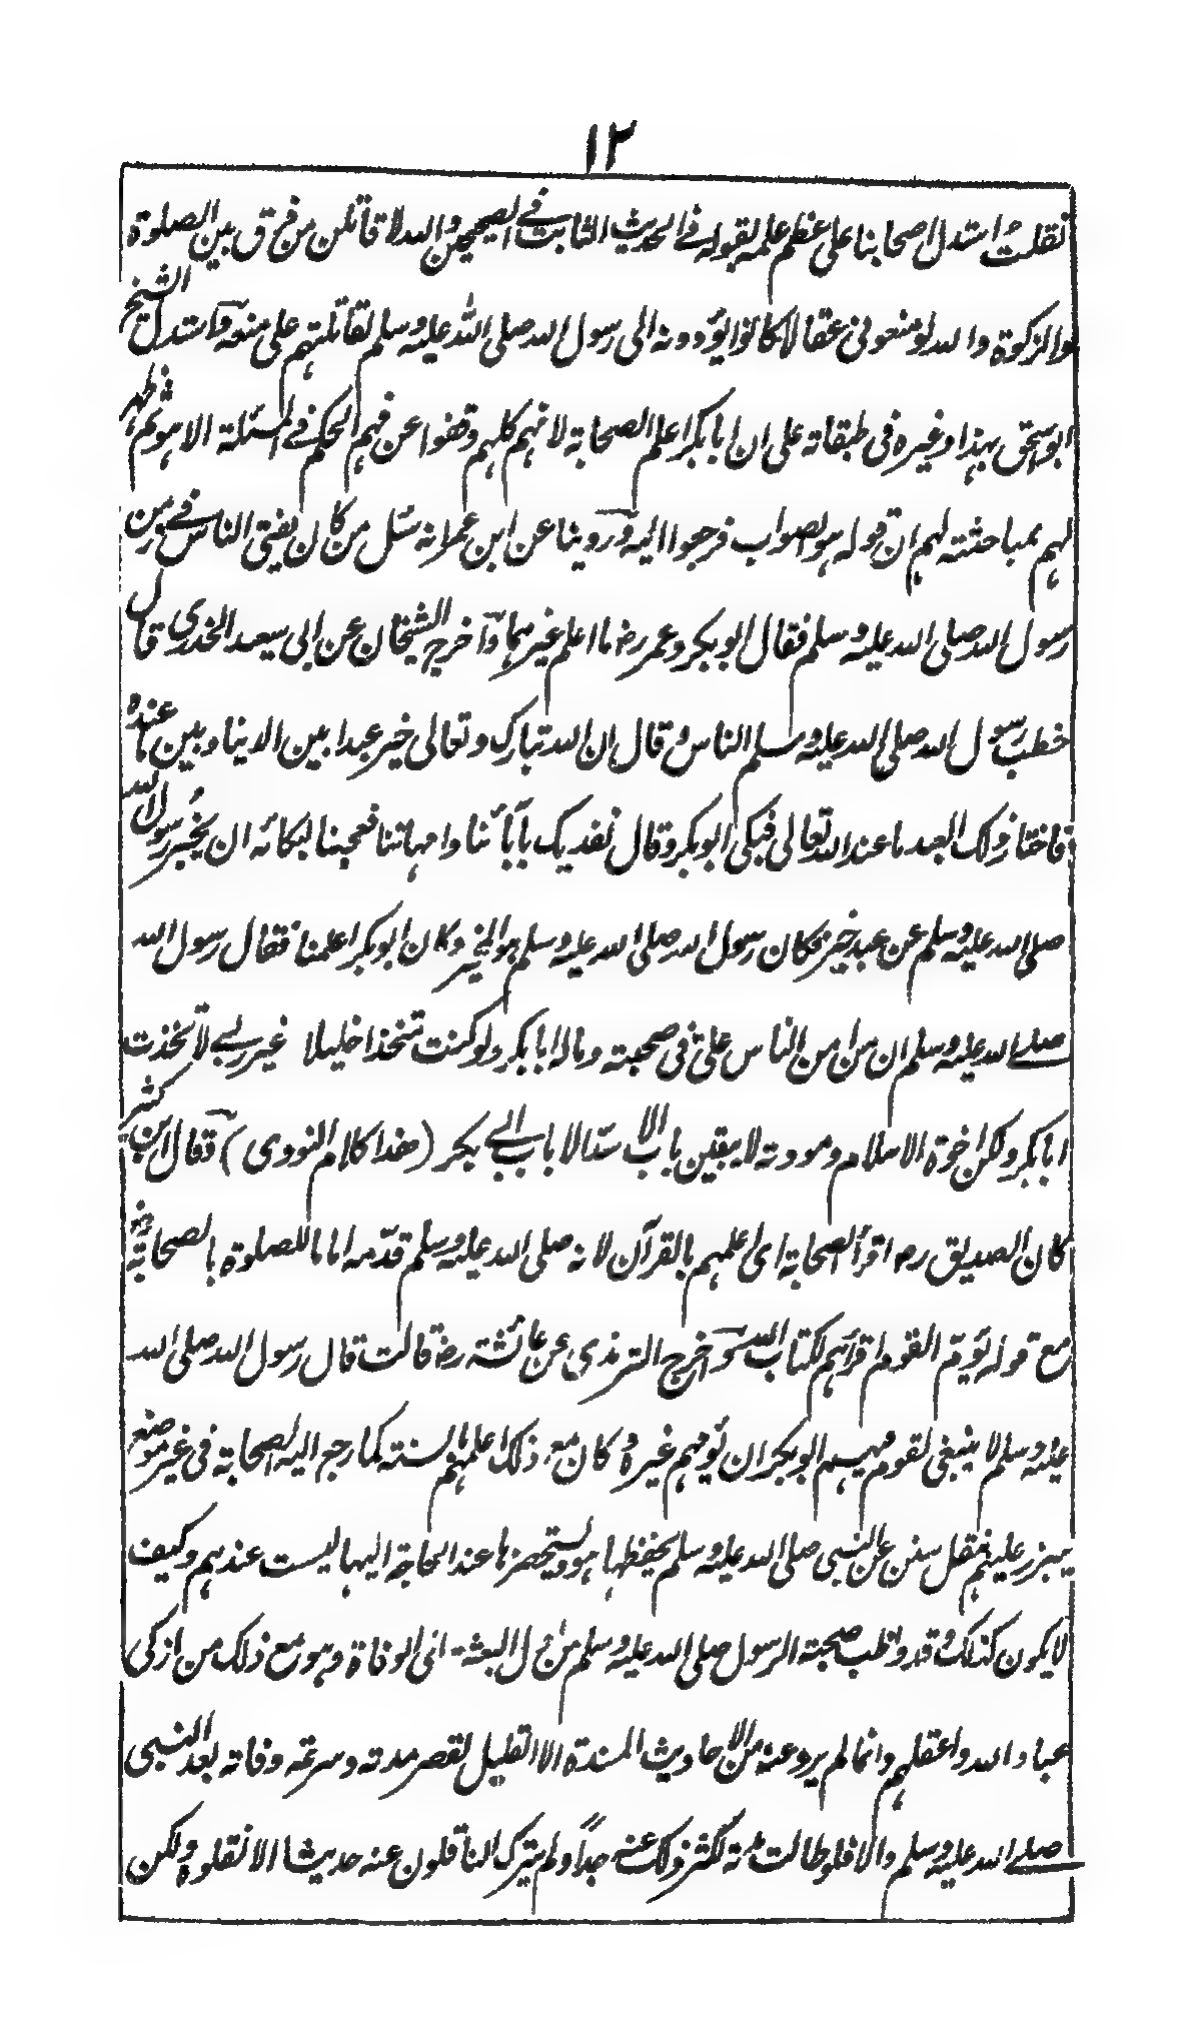 ١٢
نقلت استدل اصحابنا على عظم علمه بقوله فى الحديث الثابت فى الصحيحين والله لا قاتلن من فرق بين الصلوة
والزكوة والله لو منعونى عقالا كانوا يؤدونه الى رسول الله صلى الله عليه وسلم لقاتلتهم على منعه واستدل الشيخ
ابو اسحق بهذا وغيره فى طبقاته على ان ابا بكر اعلم الصحابة لانهم كلهم وقفوا عن فهم الحكم فى المسئلة الا هو ثم ظهر
لهم بمباحثته لهم ان قوله هو الصواب فرجوا اليه وروينا عن ابن عمر انه سئل من كان يفتى الناس فى زمن
رسول الله صلى الله عليه وسلم فقال ابو بكر وعمر رض ما اعلم غيرهما واخرج الشيخان عن ابى سعيد الخدرى قال
خطب رسول الله صلى الله عليه وسلم الناس وقال ان الله تبارك وتعالى خير عبدا بين الدنيا وبين ما عنده
فاختار ذلك العبد ما عند الله تعالى فبكى ابو بكر وقال نفديك بآبائنا وامهاتنا فعجبنا لبكائه ان يخبر رسول الله
صلى الله عليه وسلم عن عبد خير فكان رسول الله صلى الله عليه وسلم هو المخير وكان ابو بكر اعلمنا فقال رسول الله
صلے الله عليه وسلم ان من امن الناس علىّ فى صحبته وماله ابا بكر ولو كنت متخذا خليلا غير ربے لاتخذت
ابا بكر ولكن اخوة الاسلام ومودته لا يبقين باب الا سدّ الا باب ابے بكر (هذا كلام النووى) وقال ابن كثير
كان الصديق رض اقرأ الصحابة اى اعلمهم بالقرآن لانه صلى الله عليه وسلم قدّمه اماما للصلوة بالصحابة رض
مع قوله يؤم القوم اقرأهم لكتاب الله واخرج الترمذى عن عائشة رض قالت قال رسول الله صلى الله
عليه وسلم لا ينبغى لقوم فيهم ابو بكر ان يؤمهم غيره وكان مع ذلك اعلمهم بالسنة كما رجع اليه الصحابة فى غير موضع
يبرز عليهم بنقل سنن عن النبى صلى الله عليه وسلم يحفظها هو ويستحضرها عند الحاجة اليها ليست عندهم وكيف
لا يكون كذلك وقد واظب صحبته الرسول صلى الله عليه وسلم من اول البعثة الى الوفاة وهو مع ذلك من ازكى
عباد الله واعقلهم وانما لم يرو عنه من الاحاديث المسندة الا القليل لقصر مدته وسرعة وفاته بعد النبى
صلے الله عليه وسلم والا فلو طالت مدته لكثر ذلك عنه جداً ولم يترك الناقلون عنه حديثا الا نقلوه ولكن